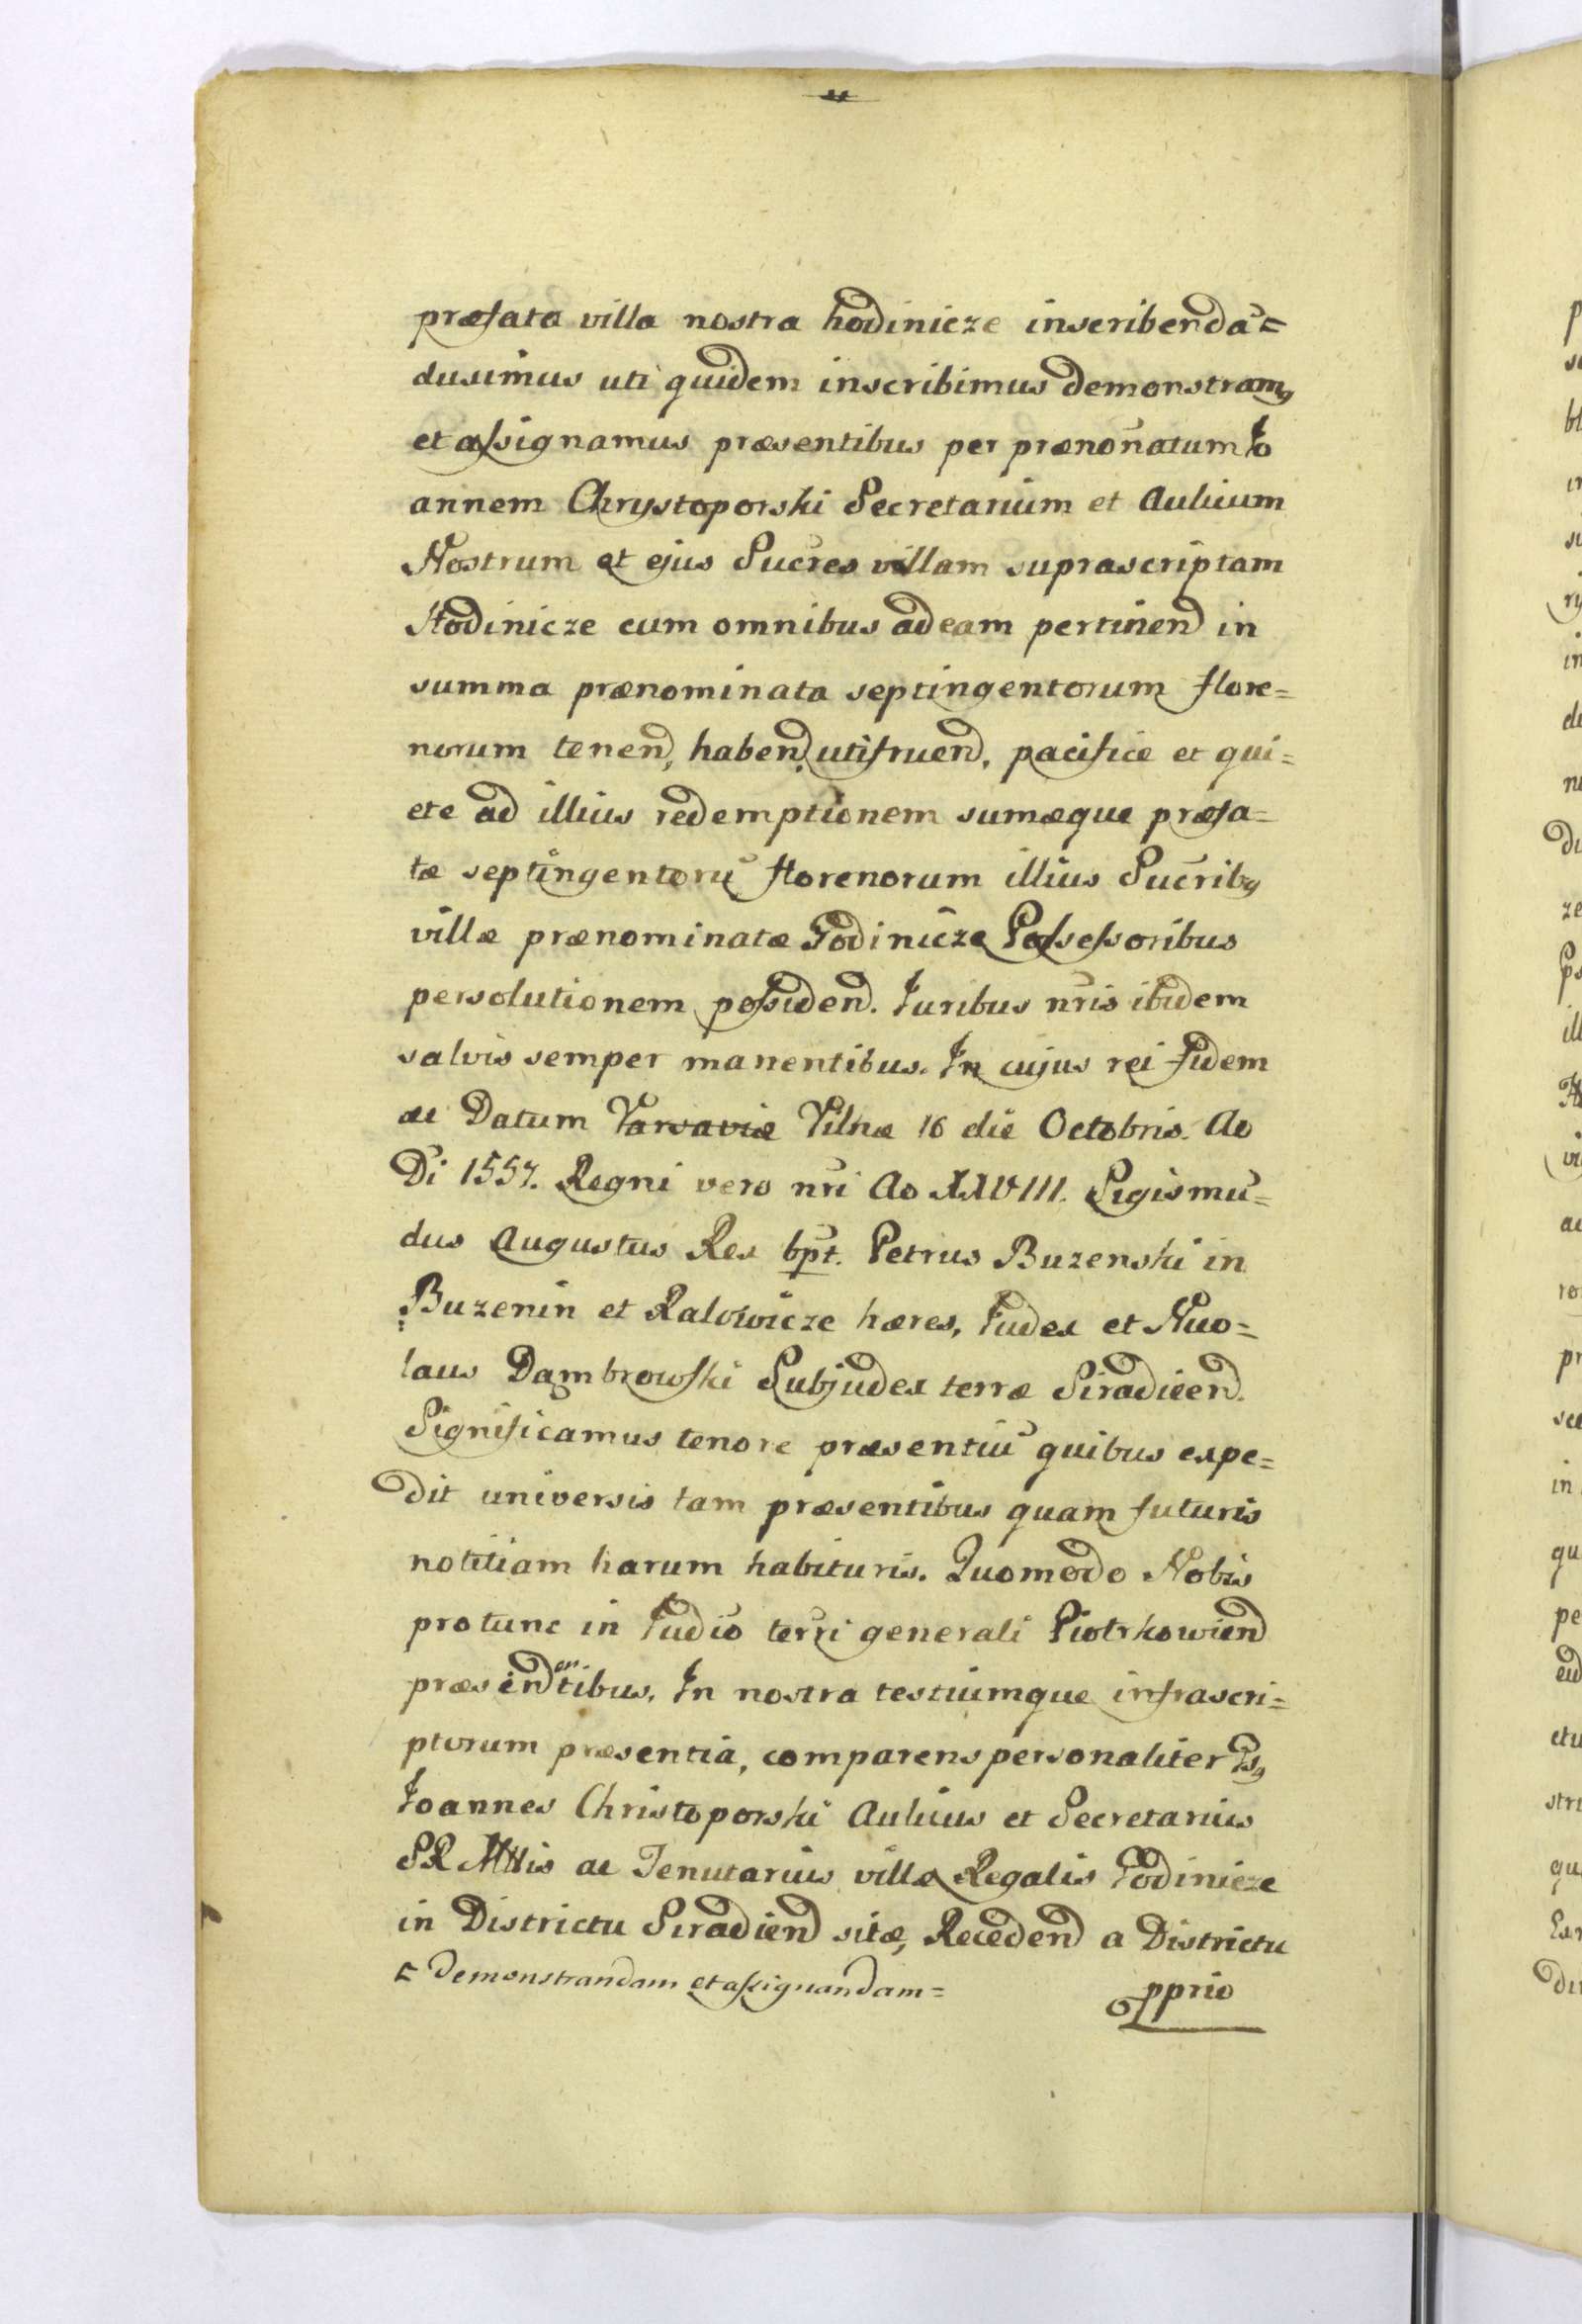 præfata villa nostra hodinicze inscribendā
duximus uti quidem inscribimus demonstramꝰ
et assignamus præsentibus per prænoñatum Jo
annem Chrystoporski Secretarium et Aulicum
Nostrum et ejus Succ̃res villam suprascriptam
Hodinicze cum omnibus ad eam pertinen̄d in
summa prænominata septingentorum flore=
norum tenend, habend, utifruend, pacifice et qui=
ete ad illius redemptionem sumæque præfa=
tæ septingentorū florenorum illius Sucribꝰ
villæ prænominatæ Godinicze Possessoribus
persolutionem possidend. Juribus nris ibidem
salvis semper manentibus. In cujus rei fidem
ac Datum Varsaviæ Vilnæ 16 die Octobris. Ao
Di 1557. Regni vero nri Ao XXVIII. Sigismū=
dus Augustus Rex spt. Petrus Buzenski in
Buzenin et Ralowicze hæres, Judex et Nico=
laus Dambrowski Subjudex terræ Siradien̄d.
Significamus tenore præsentiū quibus expe=
dit universis tam præsentibus quam futuris
notitiam harum habituris. Quomodo Nobis
protunc in Judio terri generali Piotrkowiend
præsidentibus. In nostra testiumque infrascri=
ptorum præsentia, comparens personaliter Gsꝰ
Joannes Christoporski Aulicus et Secretarius
SR Mttis ac Tenutarius villæ Regalis Godinicze
in Districtu Siradiend sitæ, Recedend a Districtu
demonstrandam et assignandam=
pprio